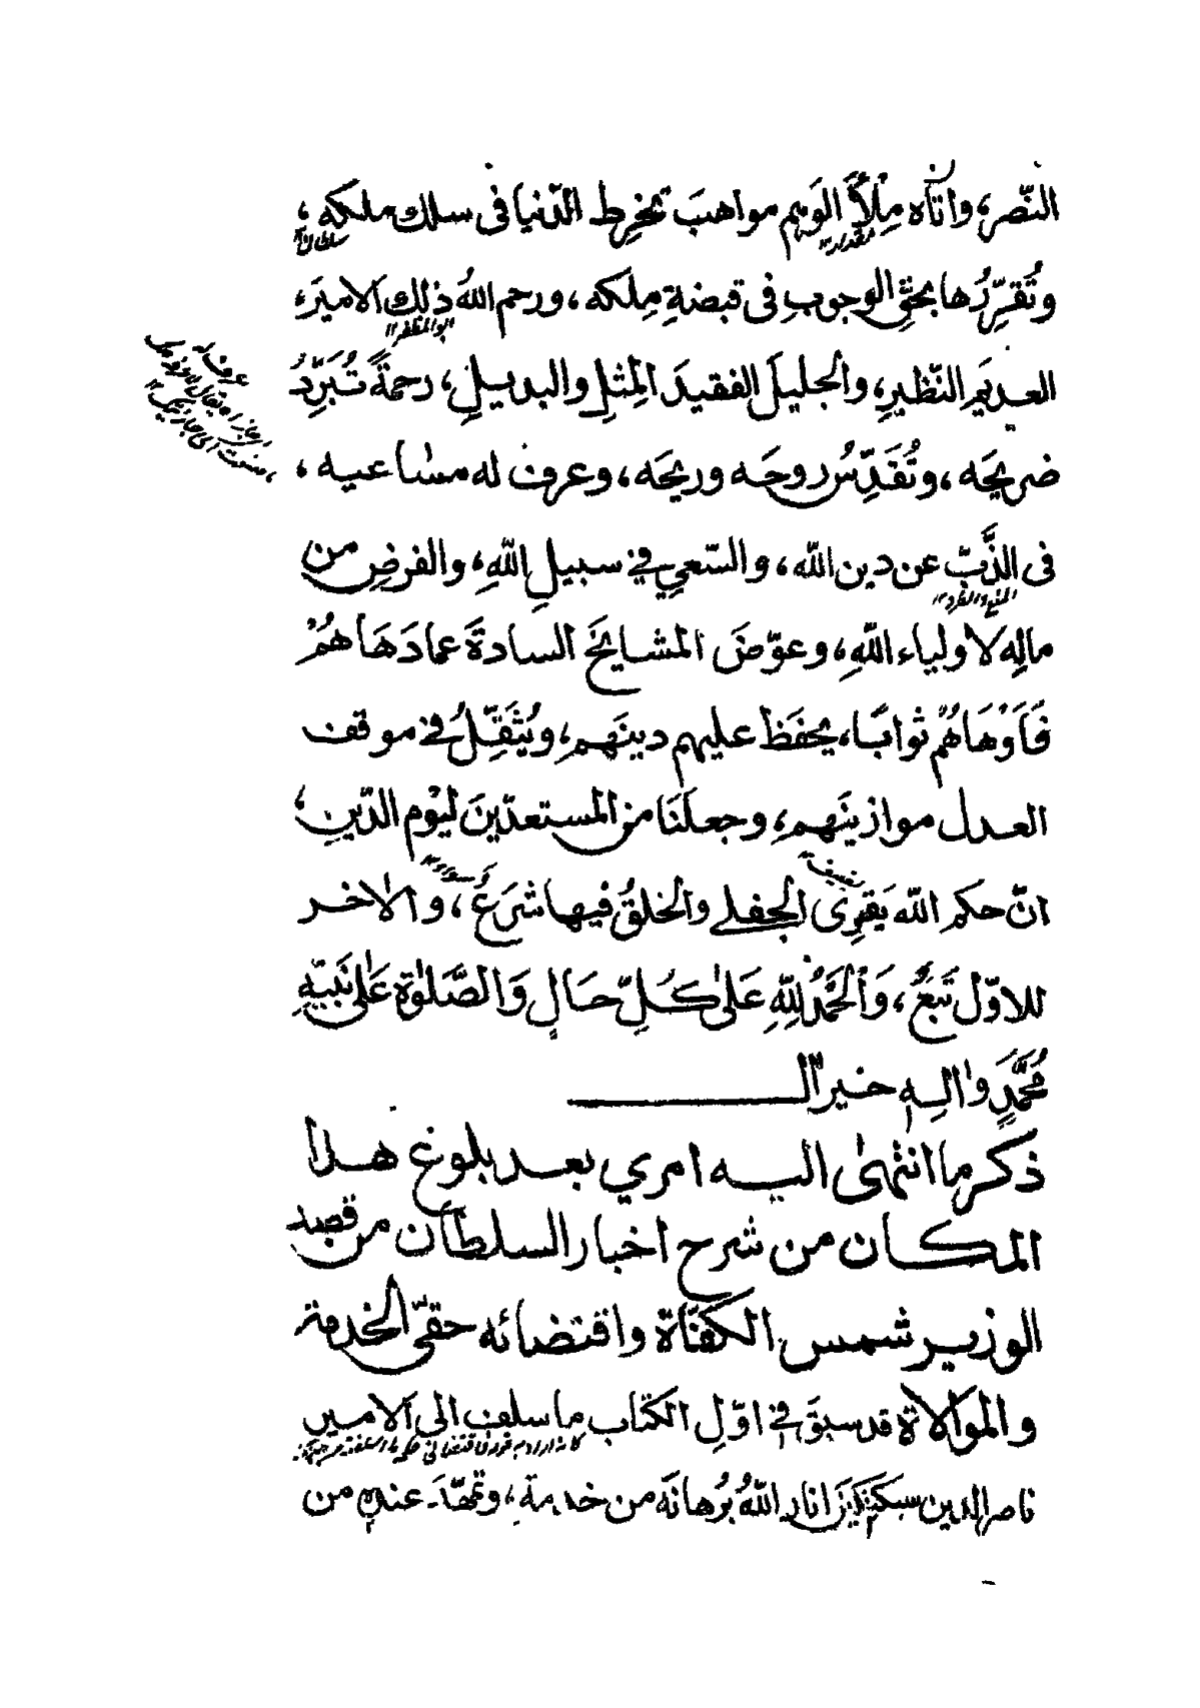 النّصر، واتاه مِلْأَ الوَهم مواهبَ تخرِط الدّنيا فى سلك ملكه،
وتُقرِّرُها بحقِّ الوجوبِ فى قبضةِ مِلكه، ورحم اللهُ ذلك الاميرَ،
العديمَ النّظيرِ، والجليلَ الفقيدَ المِثلِ والبديلِ، رحمةً تُبَرِّدُ
ضريحَه، وتُقَدِّسُ روحَه وريحَه، وعرف له مساعيه،
فى الذَّبّ عن دين الله، والسّعيِ في سبيلِ اللّهِ، والفرضِ من
مالِه لاولياء اللّهِ، وعوّضَ المشايخَ السادةَ عمادَهَا هُمْ
فَاَوْهَاهُمْ ثوابًا، يحفَظ عليهم دينَهم، ويُثَقِّلُ في موقف
العدل موازينَهم، وجعلَنَا من المستعدّينَ ليَوْم الدّينِ،
انّ حكم اللّه يَقرِى الجفلى والخلقُ فيها شَرَعٌ، والاخر
للاوّل تَبَعٌ، وَالْحَمْدُ لِلّهِ عَلىٰ كُلِّ حَالٍ وَالصَّلٰوة عَلىٰ نَبيّهِ
مُحَمَّدٍ واٰلِهٖ خير اٰل
ذكر ما انتهىٰ اليه امري بعد بلوغ هذا
المكان من شرح اخبار السلطان من قصد
الوزير شمس الكفاة واقتضائه حقّى الخدمة
والموَالاة قد سبقَ في اوّلِ الكتاب ما سلف الى الامير
ناصر الدين سبكتكين انار اللهُ بُرْهانَه من خدمةٍ، وتمهّدَ عنده من